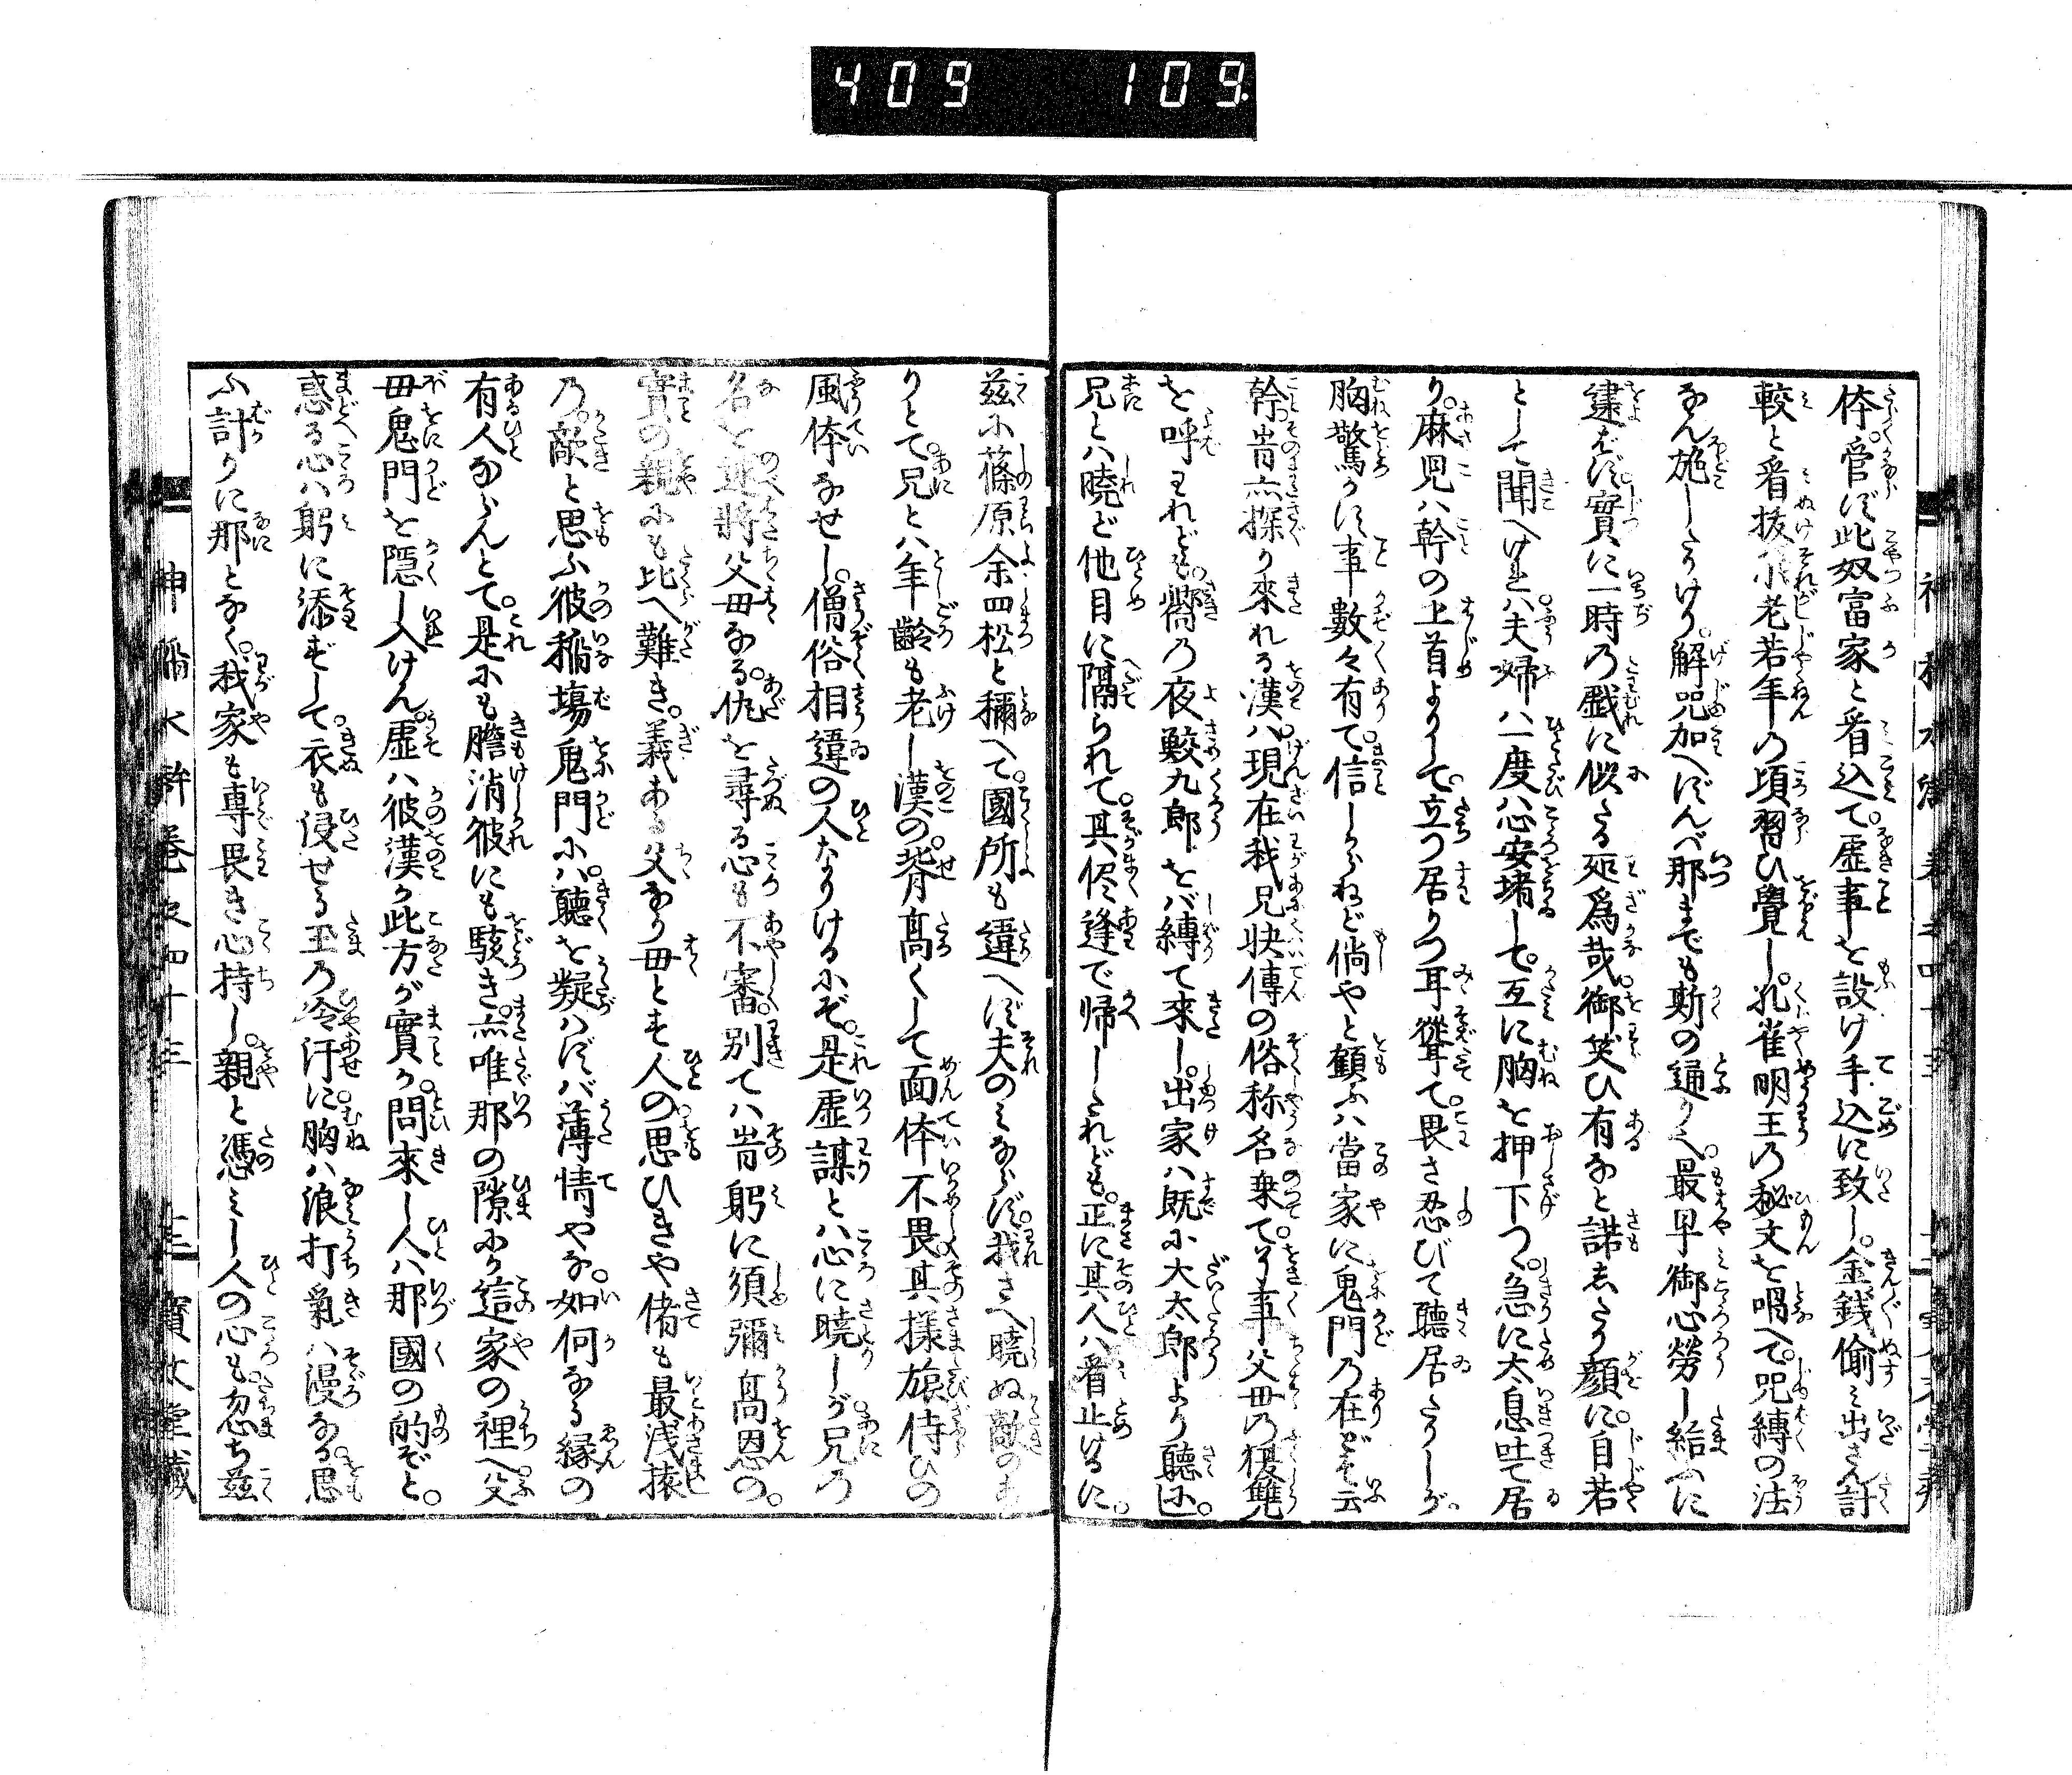 409 109
体。管ず此奴富家と看込て。虚事を設け手込に致し。金銭偸み出さん計
較と看抜ども老若年の頃習ひ覺し。孔雀明王の秘文を唱へて。咒縛の法
なん施したうけり。解咒加へずんべ那までも斯の通りへ。最早御心勞し給ふに
逮ばず。實に一時の戯に似たる所爲哉。御笑ひ有なと諾ゑたり顔に。自若
として聞へければ。夫婦ハ一度心安堵して。互に胸を押下つ。急に太息吐て居
り。麻児ハ幹の上首よりして。立つ居りつ耳聳て。畏さ忍びて聽居たりしが。
胸驚かす事數々有て。信しからねど倘やと顧ふハ當家に鬼門の在どぞ云
幹。旹亦探り來れる漢ハ。現在我兄快傳の俗称名乗て。する事父母の復讐
を呼はれども。嚮の夜鮫九郎をバ縛て來し。出家ハ既に大太郎より聽に。
兄とハ曉ど他目に隔られて。其侭逢で帰しされども。正に其人ハ看止けるに。
茲に篠原余四松と稱へて。國所も違へず夫のみならず。我さへ曉ぬ敵のあ
りとて。兄とハ年齢も老し漢の。背高くして面体不畏。其様旅侍ひの
風体なせし。僧俗相違の人なりけるにぞ。是虚謀とハ心に曉しが。兄の
名を述將父母なる。仇を尋る心も不審。別てハ旹躬に須彌高恩の。
實の親にも比へ難き。義ある父なり母とも人の思ひきや偖も最浅猿
の。敵と思ふ彼稲塲鬼門に。聽を疑ハずバ薄情やな。如何なる縁の
有人ならんとて。是にも膽消彼にも駭き。亦唯那の隙にか這家の裡へ父
毋鬼門を隠し入けん。虚ハ彼漢か此方が實か。問來し人ハ那國の的ぞと。
惑る心ハ躬に添ずして。衣も侵せる玉の冷汗に胸ハ浪打氣ハ漫なる思
ふ計りに那となく。我家も専畏き心持し。親と憑みし人の心も。忽ち茲
神稲水滸巻之四十三 十三 寳文堂藏